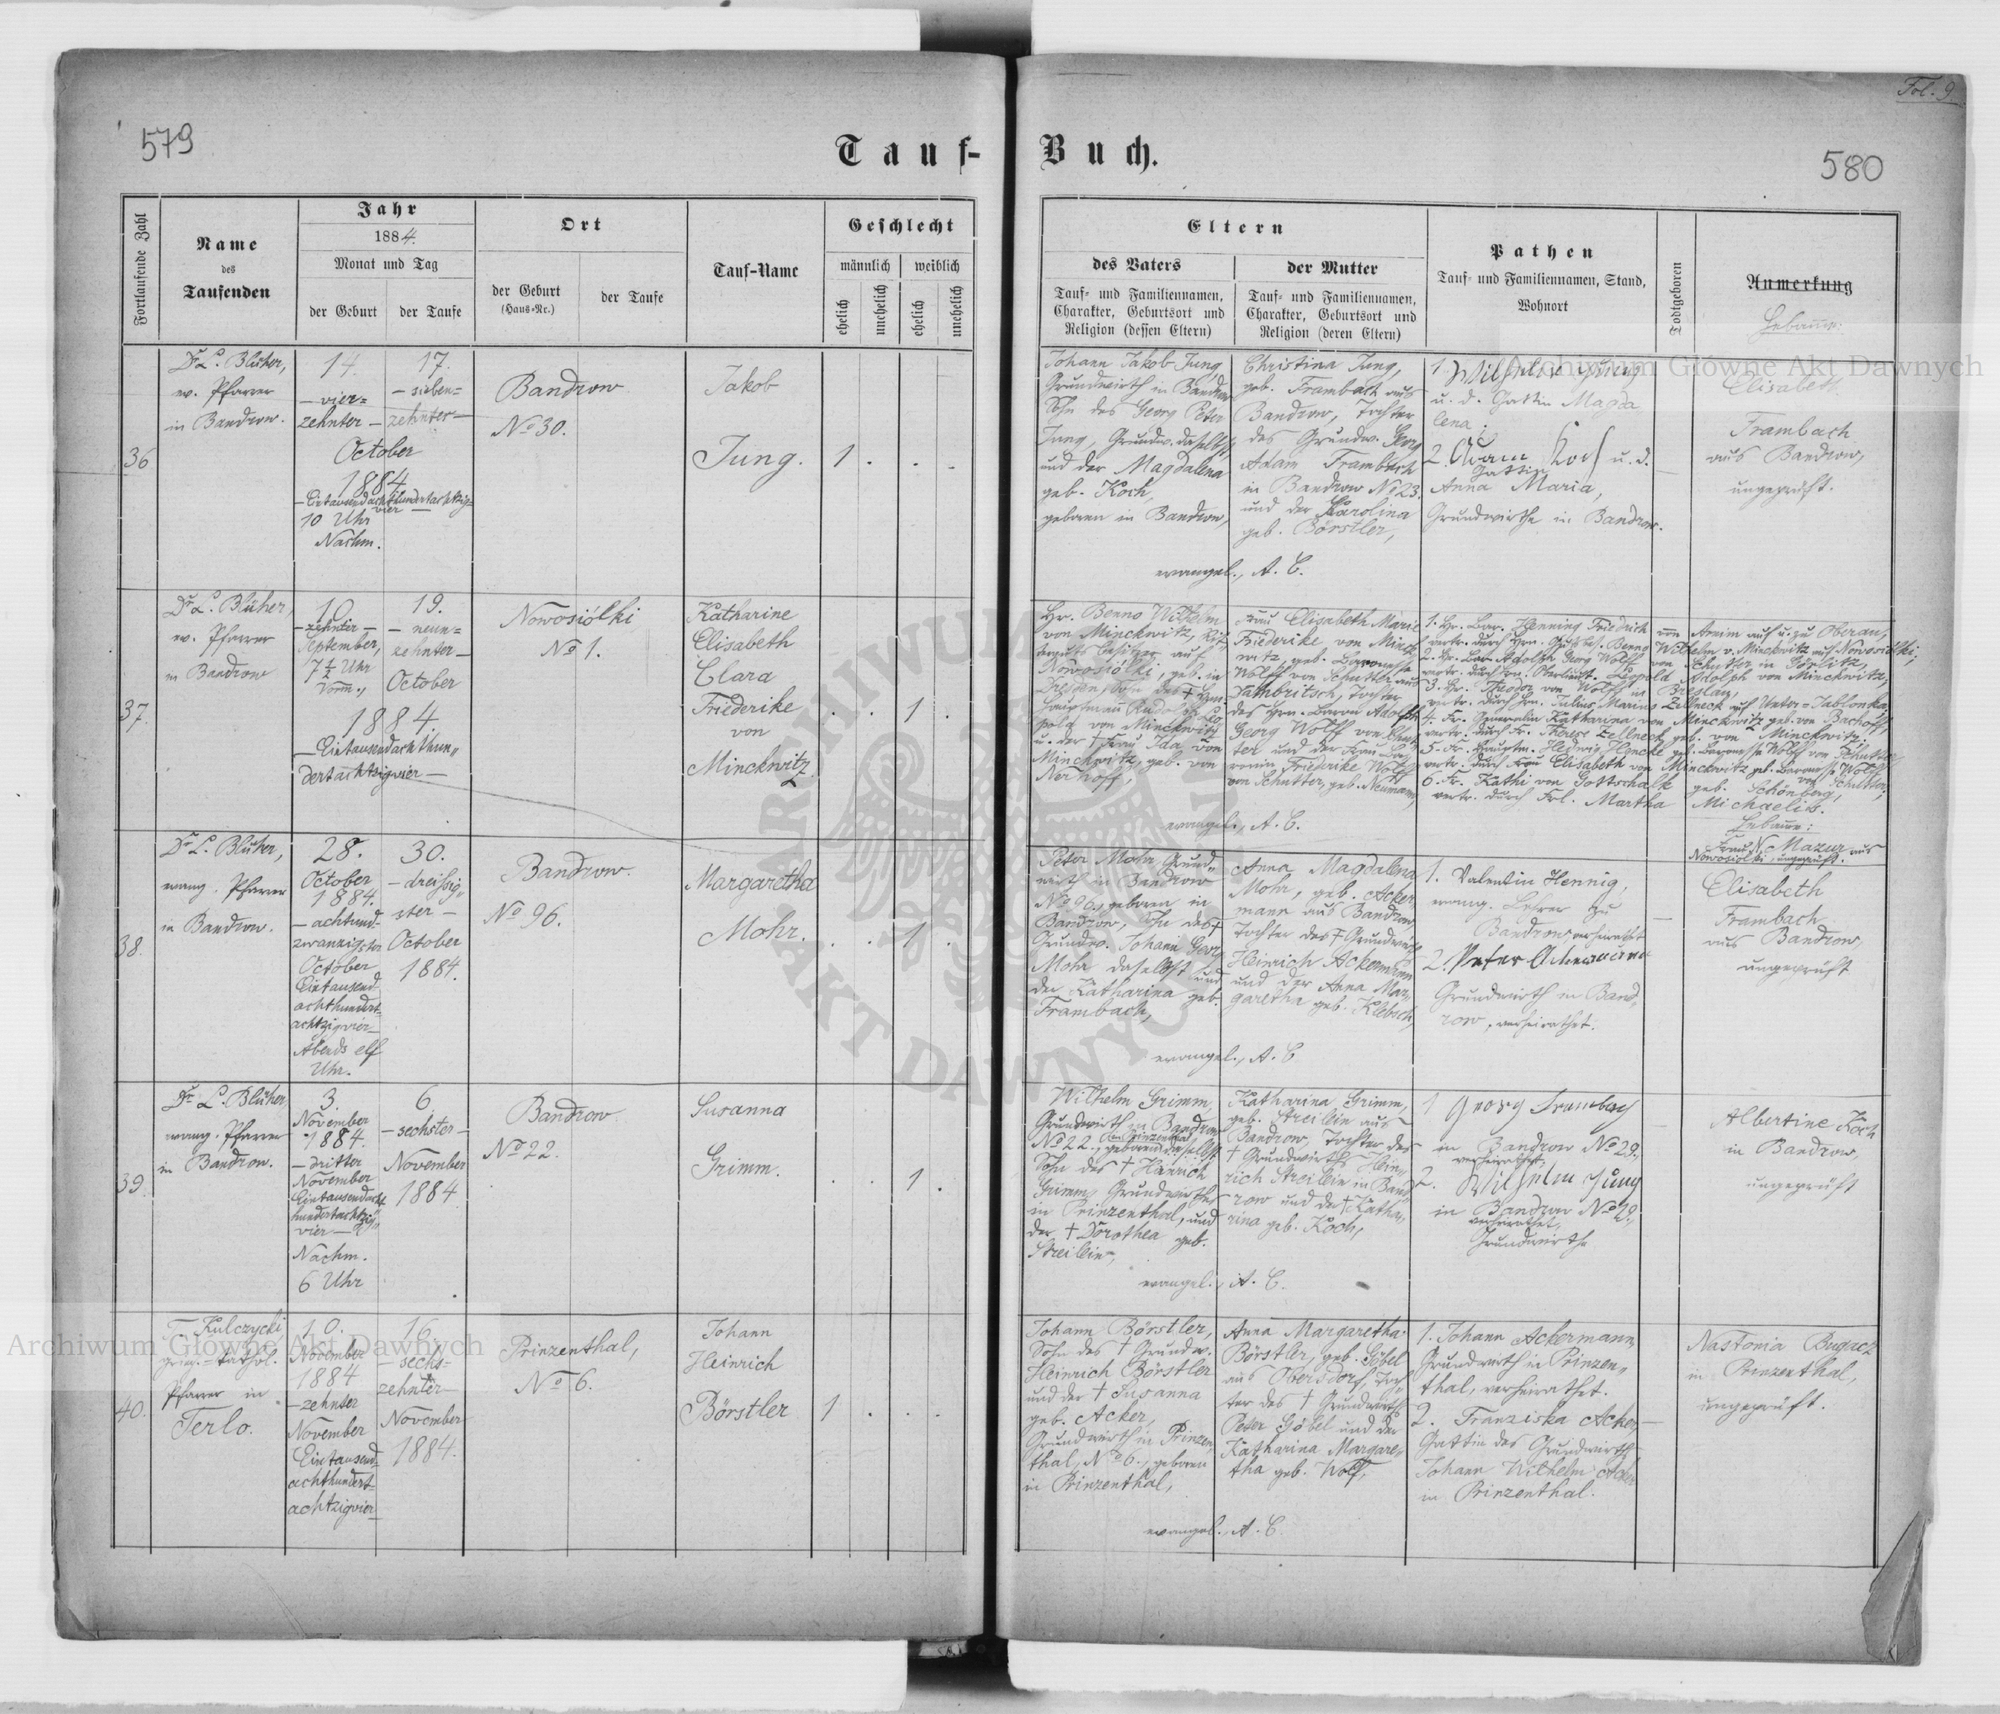 Fol. 9
579
Tauf-
Buch.
580
Fortlaufende Zahl
Name
des
Taufenden
Jahr
1884.
Monat und Tag
der Geburt
der Taufe
Ort
der Geburt
(Haus-Nr.)
der Taufe
Tauf-Name
Geschlecht
männlich
weiblich
ehelich
unehelich
ehelich
unehelich
Eltern
des Vaters
Tauf- und Familiennamen,
Charakter, Geburtsort und
Religion (dessen Eltern)
der Mutter
Tauf- und Familiennamen,
Charakter, Geburtsort und
Religion (deren Eltern)
Pathen
Tauf- und Familiennamen, Stand,
Wohnort
Todtgeboren
Anmerkung
Hebamme.
36
Dr. L. Blüher,
ev. Pfarrer
in Bandrow.
14.
— vier=
zehnter —
17.
— sieben=
zehnter —
October
1884
— Eintausendachthundertachtzig=
vier —
10 Uhr
Nachm.
Bandrow
No 30.
Jakob
Jung.
1 . . .
Johann Jakob Jung,
Grundwirth in Bandrow
Sohn des Georg Peter
Jung, Grundw. daselbst,
und der Magdalena
geb. Koch,
geboren in Bandrow,
Christina Jung,
geb. Frambach aus
Bandrow, Tochter
des Grundw. Georg
Adam Frambach
in Bandrow No 23.
und der Karolina
geb. Börstler,
evangel., A. C.
1. Wilhelm Jung
u. d. Gattin Magda
lena;
2. Adam Koch u. d.
Gattin
Anna Maria,
Grundwirthe in Bandrow.
Elisabeth
Frambach
aus Bandrow,
ungeprüft.
37.
Dr. L. Blüher,
ev. Pfarrer
in Bandrow
10.
— zehnter —
September,
7½ Uhr
Vorm.,
19.
— neun=
zehnter —
October
1884.
— Eintausendachthun=
dertachtzigvier —
Nowosiólki
No 1.
Katharine
Elisabeth
Clara
Friederike
von
Minckwitz
. . 1 .
Hr. Benno Wilhelm
von Minckwitz, Rit=
terguts besitzer auf
Nowosiólki, geb. in
Dresden, Sohn des † Hrn.
Hauptmann Rudolph Leo
pold von Minckwitz
u. der † Frau Ida von
Minckwitz, geb. von
Nerhoff,
Frau Elisabeth Marie
Friederike von Minck
witz geb. Baronesse
Wolff von Schutter aus
Sambritsch, Tochter
des Hrn. Baron Adolph
Georg Wolff von Schut=
ter und der Frau Ba=
ronin Friedrike Wolff
von Schutter, geb. Neumann,
evangel., A. C.
1. Hr. Bar. Henning Friedrich von Arnim auf u. zu Oberau,
vertr. durch Hrn. Gutsbes. Benno Wilhelm v. Minckwitz auf Nowosiólki;
2. Hr. Bar. Adolph Georg Wolff von Schutter in Görlitz,
vertr. durch Hrn. Oberlieut. Leopold Adolph von Minckwitz,
3. Hr. Theodor von Wolff in Breslau,
vertr. durch Hrn. Julius Marino Zellneck auf Unter-Jablonka,
4. Fr. Generalin Katharina von Minckwitz geb. von Bachoff,
vertr. durch Fr. Therese Zellneck geb. von Minckwitz;
5. Fr. Hauptm. Hedwig Hencke geb. Baronesse Wolff von Schutter
vertr. durch Frau Elisabeth von Minckwitz geb. Baronesse Wolff
von Schutter;
6. Fr. Käthi von Gottschalk geb. Schönberg,
vertr. durch Frl. Martha Michaelis.
Hebamme:
Frau N. Mazur aus
Nowosiolki, ungeprüft.
38.
Dr. L. Blüher,
evang. Pfarrer
in Bandrow.
28.
October
1884.
— achtund=
zwanzigster
October
Eintausend=
achthundert=
achtzigvier—
Abends elf
Uhr.
30.
— dreissig=
ster —
October
1884.
Bandrow.
No 96.
Margaretha
Mohr.
. . 1 .
Peter Mohr, Grund=
wirth in Bandrow
No 96, geboren in
Bandrow, Sohn des †
Grundw. Johann Georg
Mohr daselbst und
der Katharina geb.
Frambach,
Anna Magdalena
Mohr, geb. Acker
mann aus Bandrow,
Tochter des † Grundwirths
Heinrich Ackermann
und der Anna Mar=
garetha geb. Klebsch,
evangel., A. C
1. Valentin Hennig,
evang. Lehrer zu
Bandrow, verheirathet
2. Peter Ackermann
Grundwirth in Band=
row, verheirathet.
Elisabeth
Frambach
aus Bandrow,
ungeprüft
39.
Dr. L. Blüher,
evang. Pfarrer
in Bandrow.
3.
November
1884.
— dritter
November
Eintausendacht
hundertachtzig=
vier —
Nachm.
6 Uhr
6
— sechster —
November
1884
Bandrow
No 22.
Susanna
Grimm.
. . 1 .
Wilhelm Grimm,
Grundwirth in Bandrow
No 22., geboren daselbst
Sohn des † Heinrich
Grimm, Grundwirthes
in Prinzenthal, und
der † Dorothea geb.
Streilein,
Katharina Grimm,
geb. Streilein aus
Bandrow, Tochter des
† Grundwirth Hein=
rich Streilein in Band
row und der † Katha=
rina geb. Koch,
evangel., A. C.
1 Georg Frambach
in Bandrow No 29.,
verheirathet.
2. Wilhelm Jung
in Bandrow No 29.,
verheirathet,
Grundwirthe
Albertine Koch
in Bandrow,
ungeprüft
40.
T. Kulczycki,
griech.=kathol.
Pfarrer in
Terlo.
10.
November
1884
— zehnter
November
Eintausend=
achthundert=
achtzigvier—
16.
— sechs=
zehnter—
November
1884.
Prinzenthal,
No 6.
Johann
Heinrich
Börstler
1 . . .
Johann Börstler,
Sohn des † Grundw.
Heinrich Börstler
und der † Susanna
geb. Acker,
Grundwirth in Prinzen=
thal, No 6., geboren
in Prinzenthal,
Anna Margaretha
Börstler, geb. Göbel
aus Obersdorf, Toch=
ter des † Grundwirth
Peter Göbel und der
Katharina Margare=
tha geb. Wolf,
evangel., A. C.
1. Johann Ackermann
Grundwirth in Prinzen=
thal, verheirathet.
2. Franziska Acker
Gattin des Grundwirth
Johann Wilhelm Acker
in Prinzenthal.
Nastonia
in Prinzenthal,
ungeprüft.
Archiwum Główne Akt Dawnych
Archiwum Główne Akt Dawnych
ARCHIWUM
AKT DAWNYCH